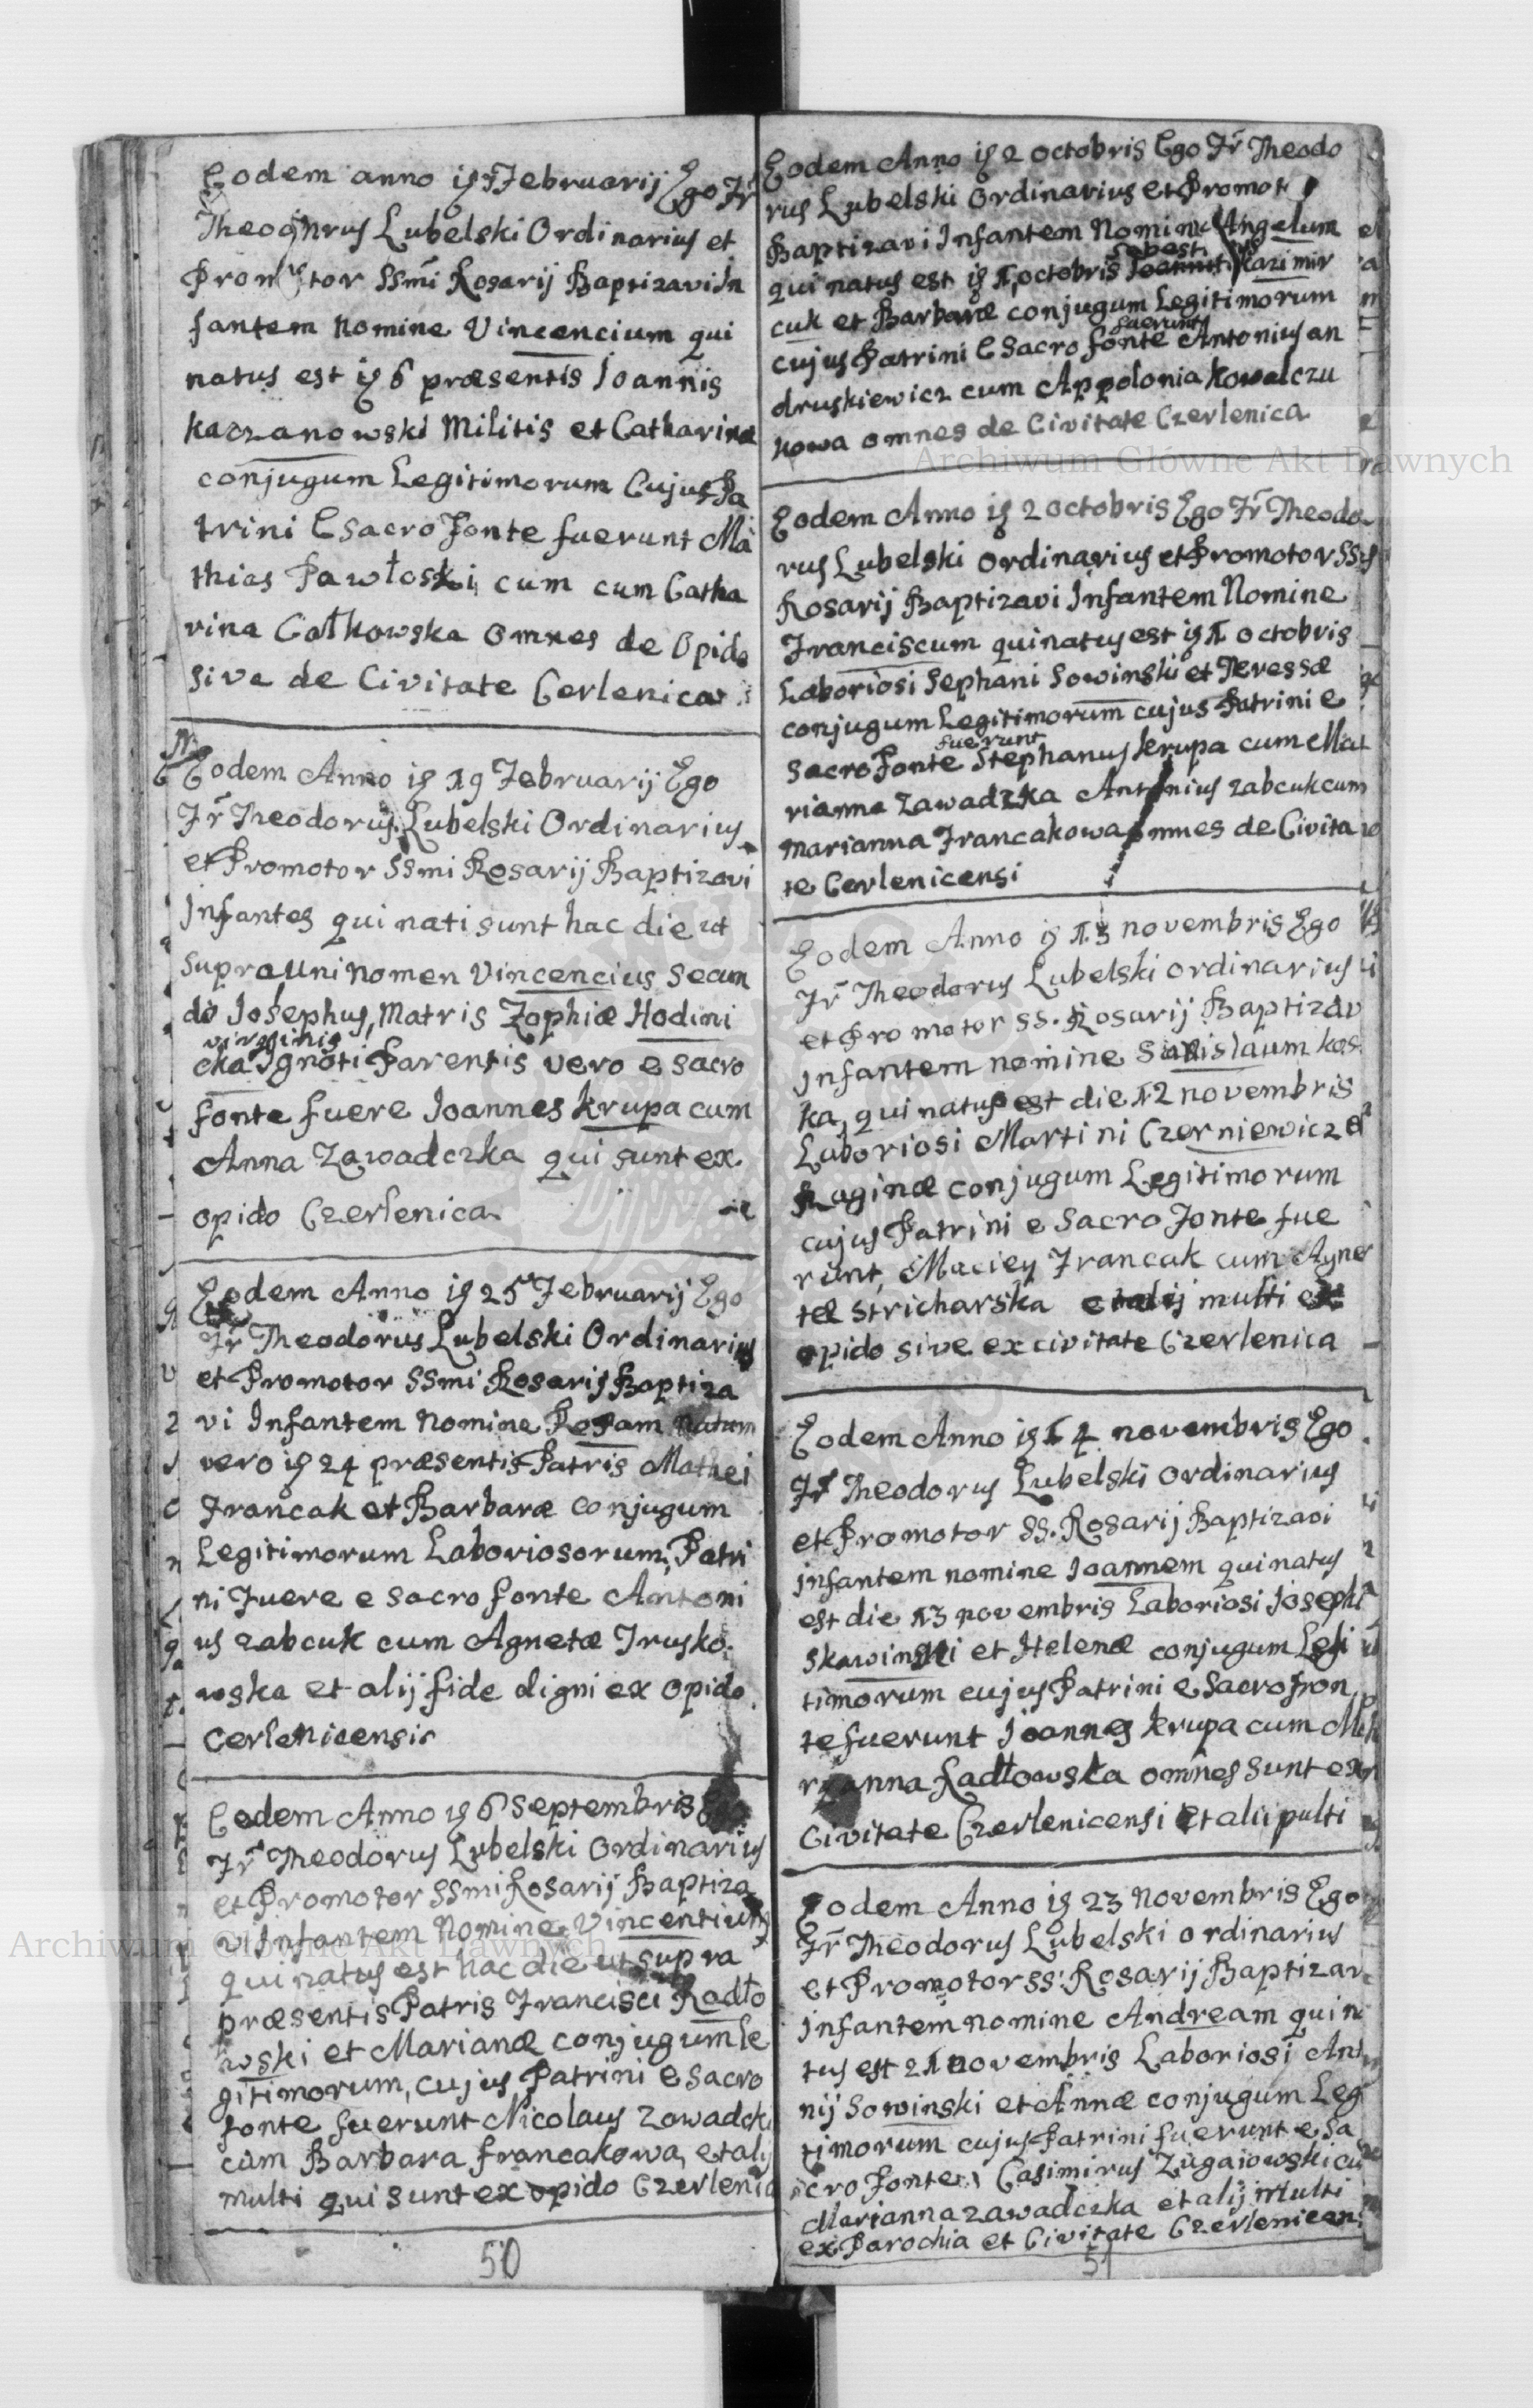 Eodem anno ig 7 Februarij Ego Fr
Theodorus Lubelski Ordinarius et
Promotor SSmi Rosarij Baptizavi In
fantem Nomine Vincencium qui
natus est ig 6 præsentis Joannis
Kaczanowski Militis et Catharinæ
conjugum Legitimorum Cujus Pa
trini E Sacro Fonte fuerunt Ma
thias Pawłoski cum cum Catha
rina Całkowska omnes de Opido
sive de Civitate Cerlenica
Eodem Anno ig 19 Februarij Ego
Fr Theodorus Lubelski Ordinarius
et Promotor SSmi Rosarij Baptizavi
Infantes qui nati sunt hac die ut
supra Uni nomen Vincencius Secun
do Josephus, Matris Zophiæ Hodini
virginis
cka Ignoti Parentis vero e sacro
fonte fuere Joannes Krupa cum
Anna Zawadczka qui sunt ex
opido Czerlenica
Eodem Anno ig 25 Februarij Ego
Fr Theodorus Lubelski Ordinarius
et Promotor SSmi Rosarij Baptiza
vi Infantem Nomine Rosam natam
vero ig 24 præsentis Patris Mathei
Francak et Barbaræ conjugum
Legitimorum Laboriosorum, Patri
ni Fuere e sacro fonte Antoni
us Zabcuk cum Agnetæ Trusko
wska et alij fide digni ex opido
Cerlenicensis
Eodem Anno ig 6 Septembris
Fr Theodorus Lubelski Ordinarius
et Promotor SSmi Rosarij Baptiza
vi Infantem Nomine Vincentium
qui natus est hac die ut supra
præsentis Patris Francisci Radło
wski et Marianæ conjugum le
gitimorum, cujus Patrini e sacro
fonte fuerunt Nicolaus Zowadcki
cum Barbara Francakowa, et alij
multi qui sunt ex opido Czerlenica
50
Eodem Anno ig 2 octobris Ego Fr Theodo
rus Lubelski Ordinarius et Promot
Baptizavi Infantem Nomine Angelum
Sebest.
qui natus est ig 1 octobris Kazimir
cuk et Barbaræ conjugum Legitimorum
fuerunt
cujus Patrini E Sacro fonte Antonius an
druskiewicz cum Appolonia Kowalczu
kowa omnes de Civitate Czerlenica
Eodem Anno ig 2 octobris Ego Fr Theodo
rus Lubelski Ordinarius et Promotor SS
Rosarij Baptizavi Infantem Nomine
Franciscum qui natus est ig 1 octobris
Laboriosi Sephani Sowinski et Teressæ
conjugum Legitimorum cujus Patrini e
fuerunt
Sacro Fonte Stephanus Krupa cum Ma
rianna Zawadzka Antonius Zabcuk cum
Marianna Francakowa omnes de Civita
te Cerlenicensi
Eodem Anno ig 13 novembris Ego
Fr Theodorus Lubelski ordinarius
et Promotor SS. Rosarij Baptizav
Infantem nomine Stanislaum kos
ka, qui natus est die 12 novembris
Laboriosi Martini Czerniewicz et
Raginæ conjugum Legitimorum
cujus Patrini e Sacro Fonte fue
runt, Maciey Francak cum Agne
tæ Stricharska et alij multi ex
opido sive ex civitate Czerlenica
Eodem Anno ig 14 novembris Ego
Fr Theodorus Lubelski ordinarius
et Promotor SS. Rosarij Baptizavi
Infantem nomine Joannem qui natus
est die 13 novembris Laboriosi Josephi
Skawinski et Helenæ conjugum Legi
timorum cujus Patrini e Sacro Fon
te fuerunt Joannes Krupa cum Ma
rianna Radłowska omnes sunt ex
Civitate Czerlenicensi et alii pulti
Eodem Anno ig 23 Novembris Ego
Fr Theodorus Lubelski ordinarius
et Promotor SS: Rosarij Baptizav
Infantem nomine Andream qui na
tus est 21 novembris Laboriosi Anto
nij Sowinski et Annæ conjugum Leg
timorum cujus Patrini fuerunt e Sa
cro Fonte Casimirus Zugaiowski cu
Marianna Zawadczka et alij multi
ex Parochia et Civitate Czerlenicen
51
Archiwum Główne Akt Dawnych
Archiwum Główne Akt Dawnych